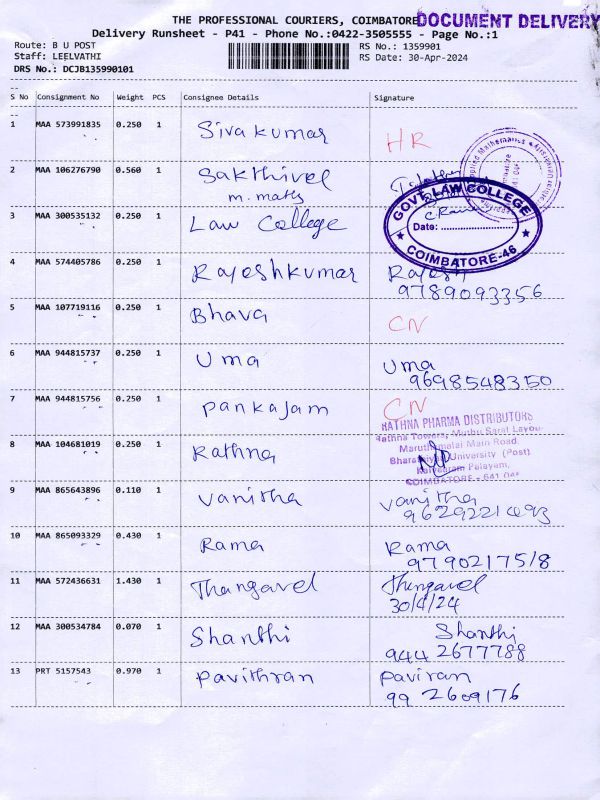 THE PROFESSIONAL COURIERS, COIMBATORE
DOCUMENT DELIVERY
Delivery Runsheet - P41 - Phone No.:0422-3505555 - Page No.:1
Route: B U POST
Staff: LEELVATHI
DRS No.: DCJB135990101
RS No.: 1359901
RS Date: 30-Apr-2024
S No Consignment No Weight PCS Consignee Details Signature
1 MAA 573991835 0.250 1 Sivakumar HR
2 MAA 106276790 0.560 1 Sakthivel
m.maths
3 MAA 300535132 0.250 1 Law College
GOVT. LAW COLLEGE
Date:
COIMBATORE-46
4 MAA 574405786 0.250 1 Rajeshkumar Rajesh
9789093356
5 MAA 107719116 0.250 1 Bhava CN
6 MAA 944815737 0.250 1 Uma Uma
9698548350
7 MAA 944815756 0.250 1 Pankajam CN
RATHNA PHARMA DISTRIBUTORS
Rathna Towers, Muthu Sarat Layou
Maruthamalai Main Road,
University (Post)
Palayam,
COIMBATORE - 641 046
8 MAA 104681019 0.250 1 Rathna
9 MAA 865643896 0.110 1 Vanitha Vanitha
10 MAA 865093329 0.430 1 Rama Rama
9790217518
11 MAA 572436631 1.430 1 Thangavel Thangavel
30/4/24
12 MAA 300534784 0.070 1 Shanthi Shanthi
944 2677788
13 PRT 5157543 0.970 1 Pavithran Paviran
99 2609176